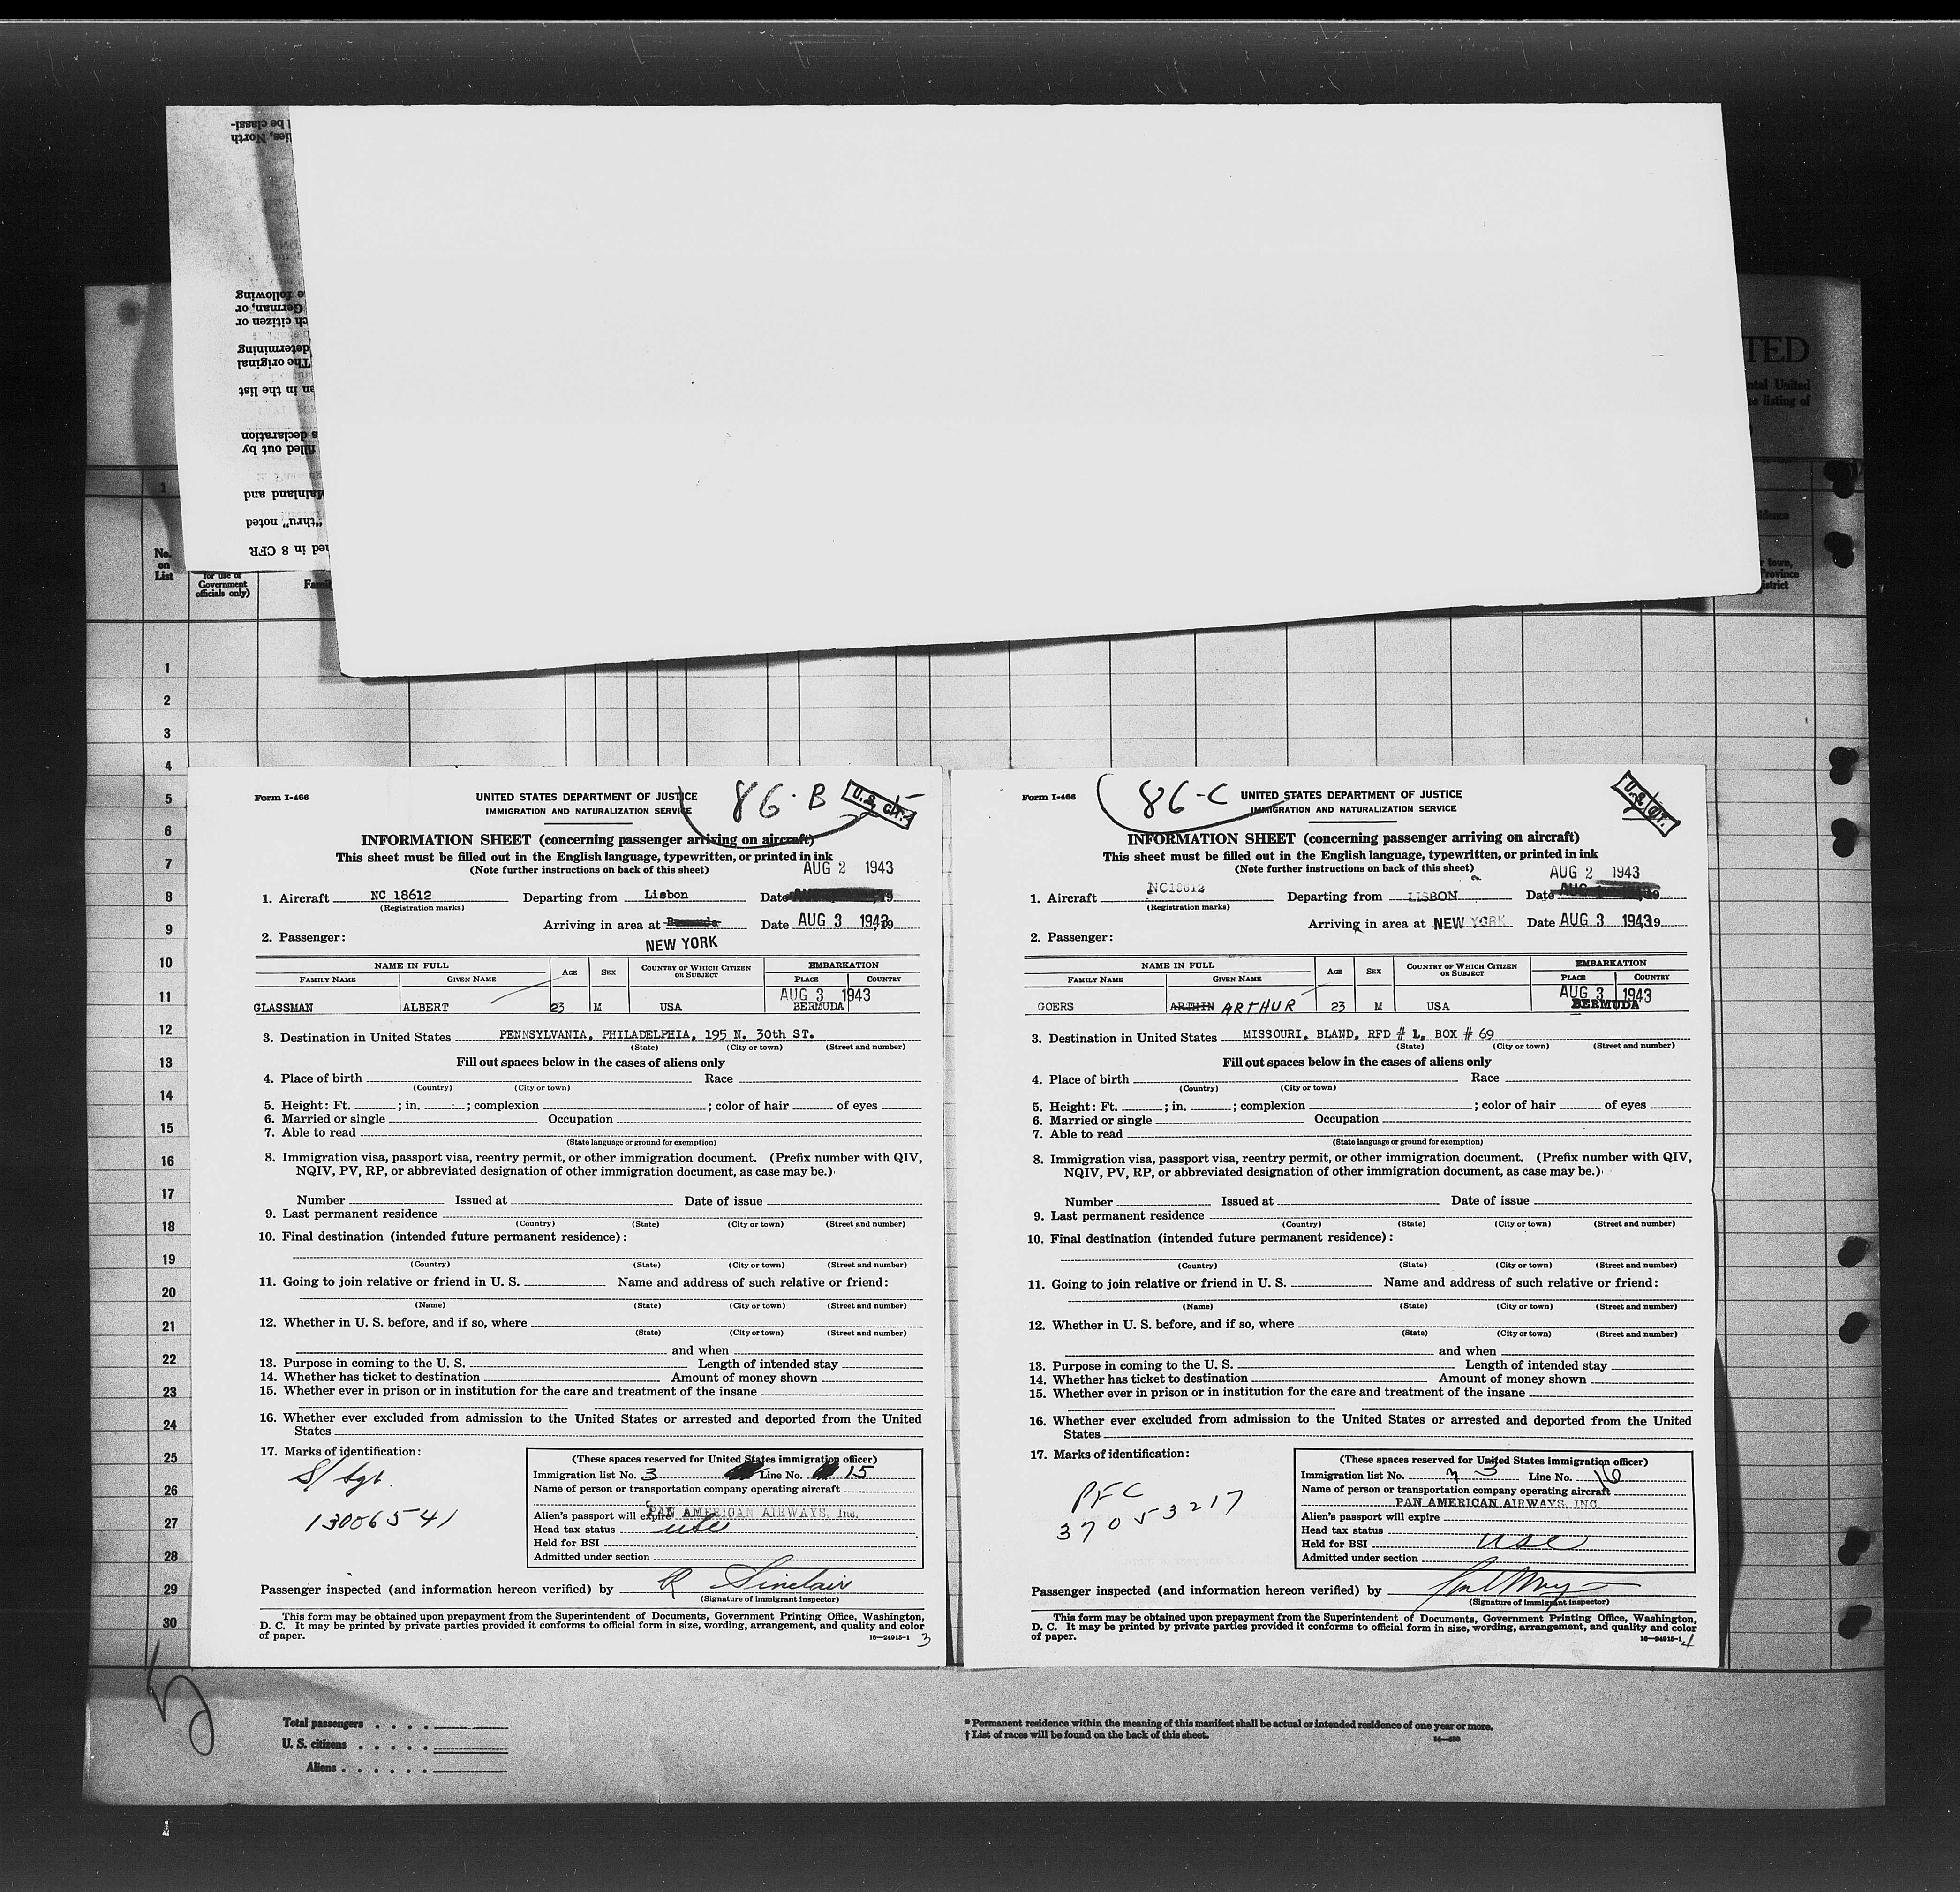 l be classi-
ies, North
e following
German, or
ch citizen or
determining
The original
en in the list
s declaration
filled out by
fainland and
"thru" noted
ned in 8 CFR
TED
ntal United
e listing of
1
No.
on
List
for use of
Government
officials only)
Famil
town,
Province
istrict
1
2
3
4
5
6
7
8
9
10
11
12
13
14
15
16
17
18
19
20
21
22
23
24
25
26
27
28
29
30
Form I-466
UNITED STATES DEPARTMENT OF JUSTICE
86-B
U.S. CIT.
IMMIGRATION AND NATURALIZATION SERVICE
INFORMATION SHEET (concerning passenger arriving on aircraft)
This sheet must be filled out in the English language, typewritten, or printed in ink
(Note further instructions on back of this sheet)
AUG 2 1943
1. Aircraft NC 18612 Departing from Lisbon Date 19
(Registration marks)
Arriving in area at Bermuda Date AUG 3 1943 19
2. Passenger: NEW YORK
NAME IN FULL AGE SEX COUNTRY OF WHICH CITIZEN OR SUBJECT EMBARKATION
FAMILY NAME GIVEN NAME PLACE COUNTRY
AUG 3 1943
GLASSMAN ALBERT 23 M USA BERMUDA
3. Destination in United States PENNSYLVANIA, PHILADELPHIA, 195 N. 30th ST.
(State) (City or town) (Street and number)
Fill out spaces below in the cases of aliens only
4. Place of birth Race
(Country) (City or town)
5. Height: Ft. ; in. ; complexion ; color of hair of eyes
6. Married or single Occupation
7. Able to read
(State language or ground for exemption)
8. Immigration visa, passport visa, reentry permit, or other immigration document. (Prefix number with QIV,
NQIV, PV, RP, or abbreviated designation of other immigration document, as case may be.)
Number Issued at Date of issue
9. Last permanent residence
(Country) (State) (City or town) (Street and number)
10. Final destination (intended future permanent residence):
(Country) (State) (City or town) (Street and number)
11. Going to join relative or friend in U. S. Name and address of such relative or friend:
(Name) (State) (City or town) (Street and number)
12. Whether in U. S. before, and if so, where
(State) (City or town) (Street and number)
and when
13. Purpose in coming to the U. S. Length of intended stay
14. Whether has ticket to destination Amount of money shown
15. Whether ever in prison or in institution for the care and treatment of the insane
16. Whether ever excluded from admission to the United States or arrested and deported from the United
States
17. Marks of identification:
S/Sgt.
13006541
(These spaces reserved for United States immigration officer)
Immigration list No. 3 Line No. 15
Name of person or transportation company operating aircraft
PAN AMERICAN AIRWAYS, Inc.
Alien's passport will expire
Head tax status USC
Held for BSI
Admitted under section
Passenger inspected (and information hereon verified) by R Sinclair
(Signature of immigrant inspector)
This form may be obtained upon prepayment from the Superintendent of Documents, Government Printing Office, Washington,
D. C. It may be printed by private parties provided it conforms to official form in size, wording, arrangement, and quality and color
of paper. 16—24915-1 3
Form I-466
86-C
UNITED STATES DEPARTMENT OF JUSTICE
U.S. CIT.
IMMIGRATION AND NATURALIZATION SERVICE
INFORMATION SHEET (concerning passenger arriving on aircraft)
This sheet must be filled out in the English language, typewritten, or printed in ink
(Note further instructions on back of this sheet)
AUG 2 1943
1. Aircraft NC18612 Departing from LISBON Date AUG 19
(Registration marks)
Arriving in area at NEW YORK Date AUG 3 1943 19
2. Passenger:
NAME IN FULL AGE SEX COUNTRY OF WHICH CITIZEN OR SUBJECT EMBARKATION
FAMILY NAME GIVEN NAME PLACE COUNTRY
AUG 3 1943
GOERS ARTHIN ARTHUR 23 M USA BERMUDA
3. Destination in United States MISSOURI, BLAND, RFD # 1, BOX # 69
(State) (City or town) (Street and number)
Fill out spaces below in the cases of aliens only
4. Place of birth Race
(Country) (City or town)
5. Height: Ft. ; in. ; complexion ; color of hair of eyes
6. Married or single Occupation
7. Able to read
(State language or ground for exemption)
8. Immigration visa, passport visa, reentry permit, or other immigration document. (Prefix number with QIV,
NQIV, PV, RP, or abbreviated designation of other immigration document, as case may be.)
Number Issued at Date of issue
9. Last permanent residence
(Country) (State) (City or town) (Street and number)
10. Final destination (intended future permanent residence):
(Country) (State) (City or town) (Street and number)
11. Going to join relative or friend in U. S. Name and address of such relative or friend:
(Name) (State) (City or town) (Street and number)
12. Whether in U. S. before, and if so, where
(State) (City or town) (Street and number)
and when
13. Purpose in coming to the U. S. Length of intended stay
14. Whether has ticket to destination Amount of money shown
15. Whether ever in prison or in institution for the care and treatment of the insane
16. Whether ever excluded from admission to the United States or arrested and deported from the United
States
17. Marks of identification:
PFC
37053217
(These spaces reserved for United States immigration officer)
Immigration list No. 3 Line No. 16
Name of person or transportation company operating aircraft
PAN AMERICAN AIRWAYS, INC.
Alien's passport will expire
Head tax status
Held for BSI USC
Admitted under section
Passenger inspected (and information hereon verified) by
(Signature of immigrant inspector)
This form may be obtained upon prepayment from the Superintendent of Documents, Government Printing Office, Washington,
D. C. It may be printed by private parties provided it conforms to official form in size, wording, arrangement, and quality and color
of paper. 16—24915-1 4
5
Total passengers
U. S. citizens
Aliens
* Permanent residence within the meaning of this manifest shall be actual or intended residence of one year or more.
† List of races will be found on the back of this sheet.